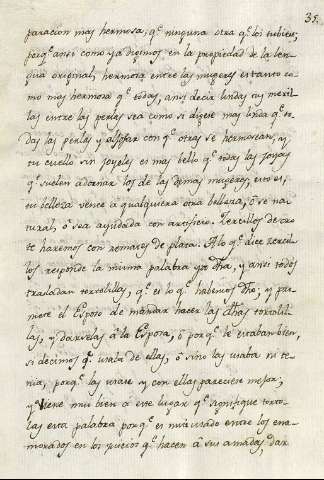 35.
paracion mas hermosa, q.e ninguna otra q.e los tubiere,
porq.e ansi como ya digimos en la propiedad de la len-
gua original, hermosa entre las mugeres es tanto co-
mo mas hermosa q.e todas, ansi decir lindas tus mexil-
las entre las perlas sea como si digese mas lindas q.e to-
das las perlas y aljofar con q.e otras se hermosean, y
tu cuello sin joyeles es mas bello q.e todas las joyas
q.e suelen adornar los de las demas mugeres, esto es,
tu belleza vence á qualquiera otra belleza, ó sea na-
tural, ó sea ayudada con artificio. Tercillos de oro
te haremos con remates de plata. A lo q.e dice
los responde la misma palabra q.e dha, y ansi todos
trasladan tortolillas, q.e es lo q.e habemos dho; y pa-
rece el Esposo de mandar hacer las dhas tortoli-
llas, y darselas á la Esposa, ó porq.e le estaban bien,
si decimos q.e usaba de ellas, ó sino las usaba ni te-
nia, porq.e las usase y con ellas pareciese mejor;
y viene mui bien á este lugar q.e signifique torto-
las esta palabra porq.e es mui usado entre los ena-
morados en los q.e hacen á sus amadas, dar